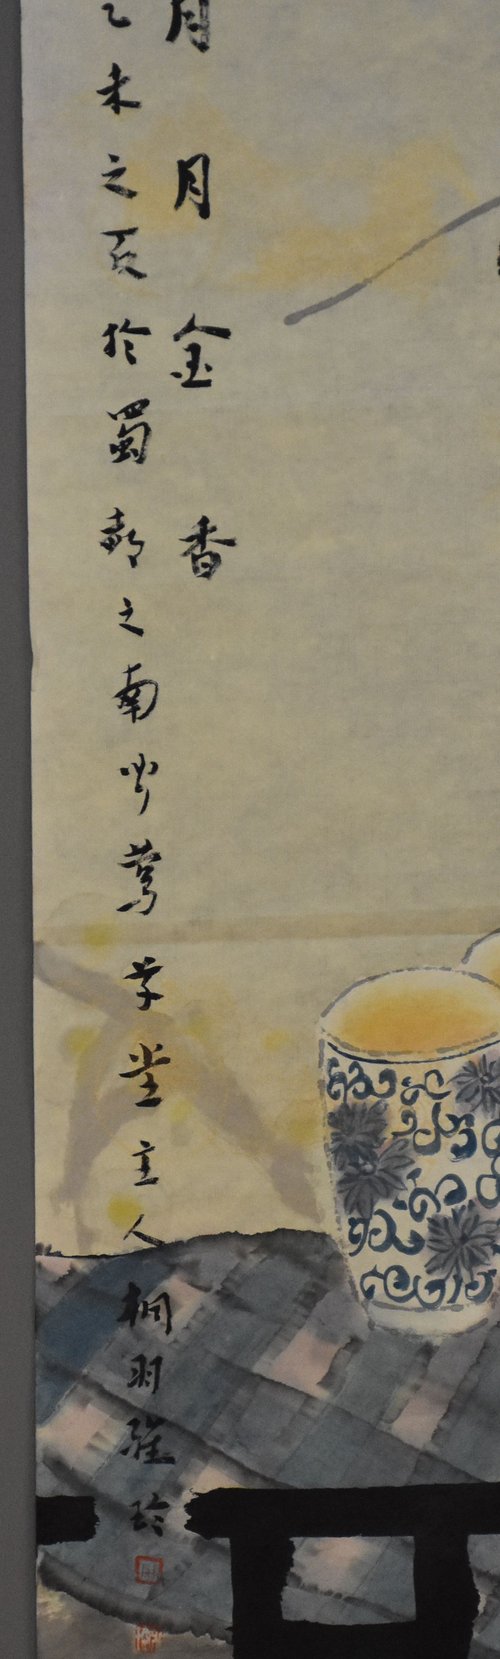 月月金香
乙未之夏於蜀都之南聞莺草堂主人桐羽玲